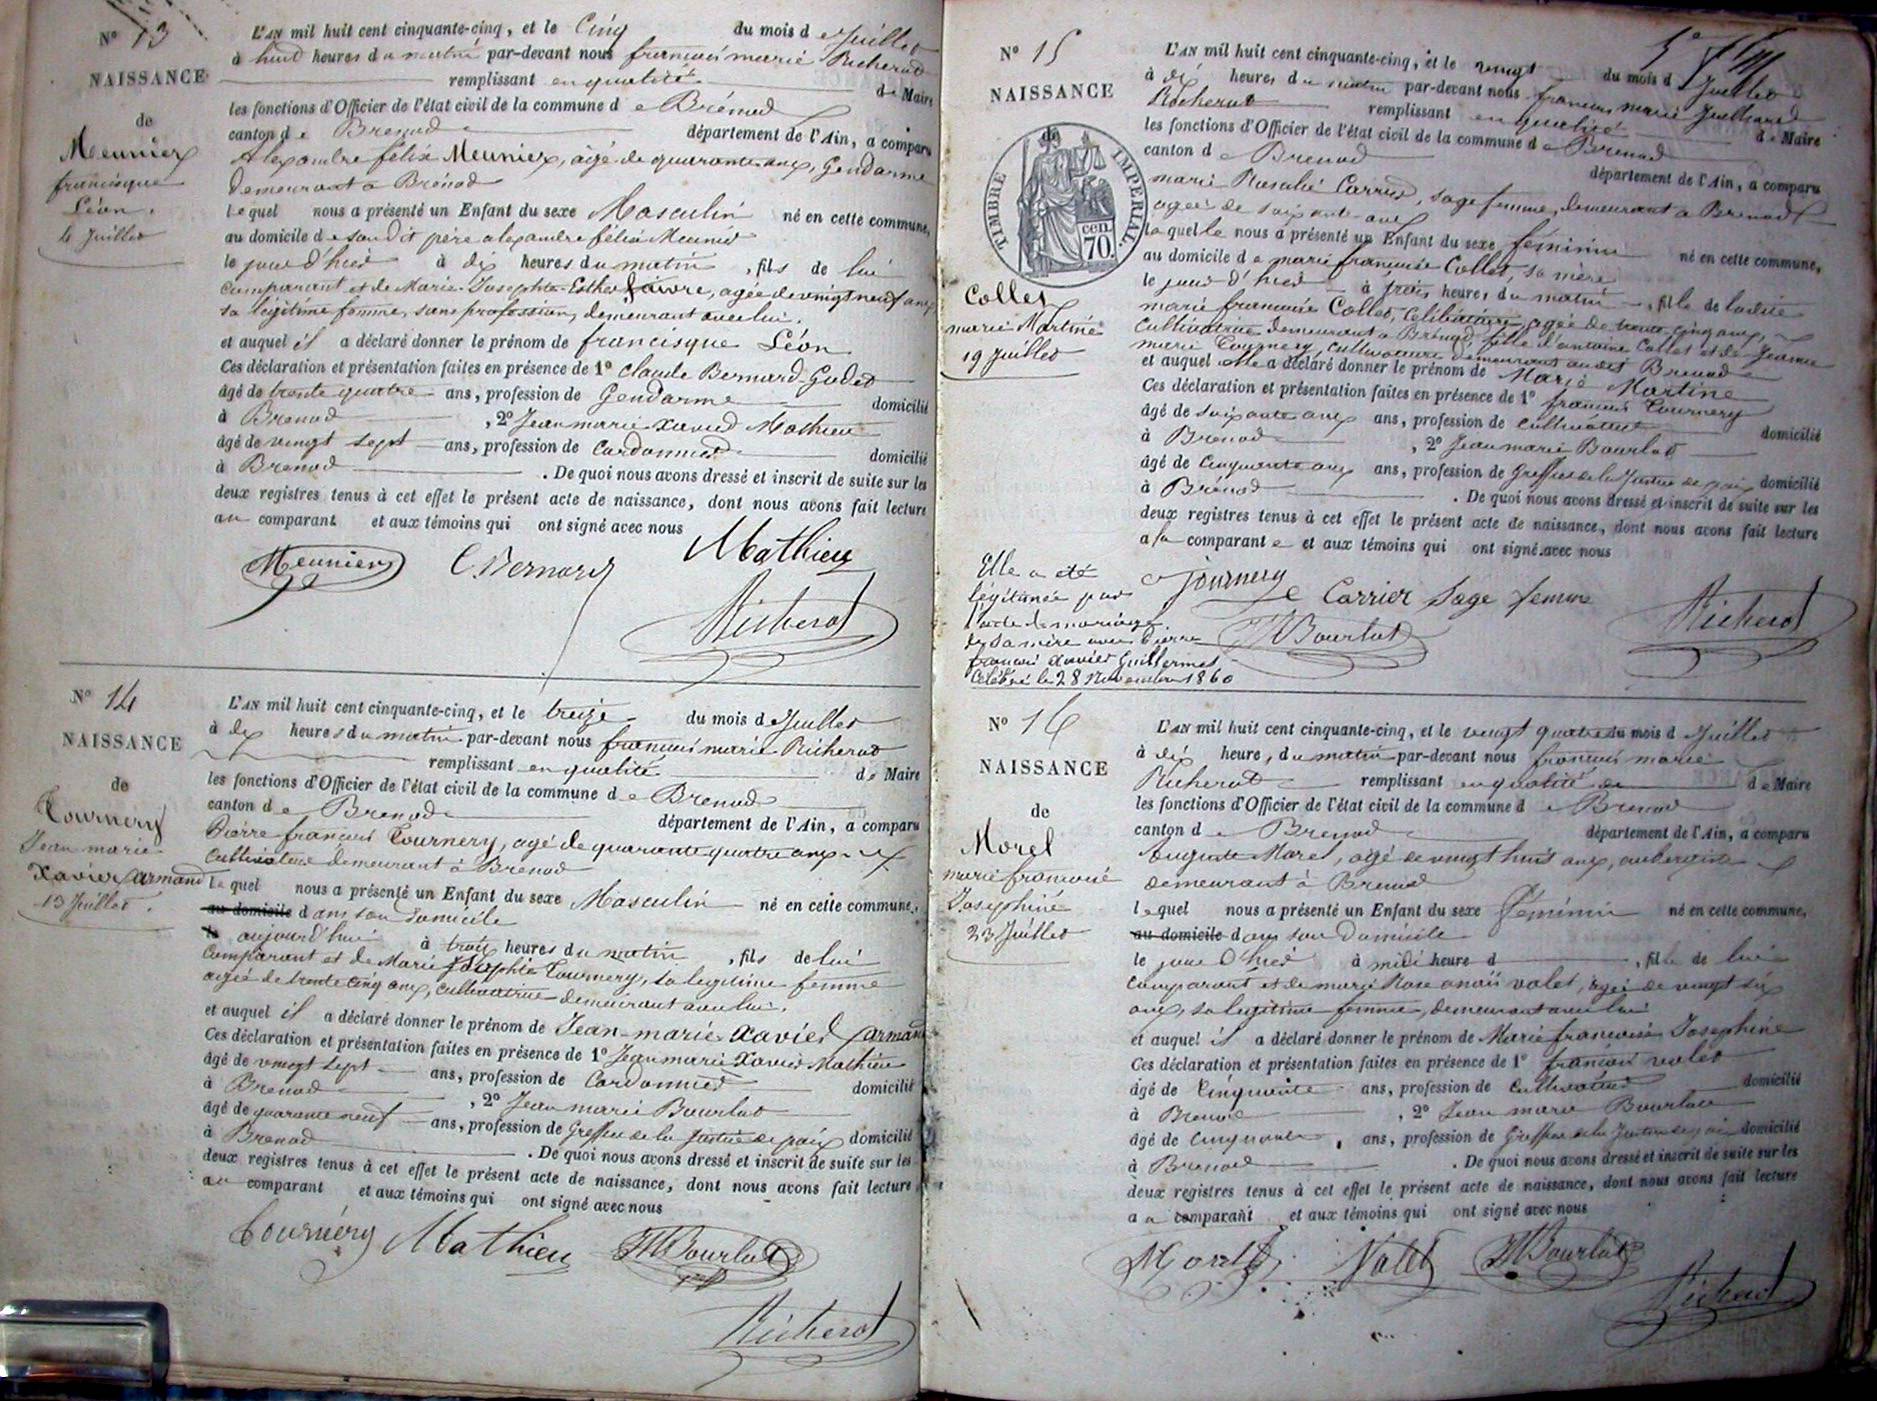 N° 13
NAISSANCE
de
Meunier
francisque
Léon.
4 Juillet
L'AN mil huit cent cinquante-cinq, et le Cinq du mois de Juillet
à huit heures du matin par-devant nous françois marie Richerot
remplissant en qualité de Maire
les fonctions d'Officier de l'état civil de la commune de Brénod
canton de Brenod département de l'Ain, a comparu
Alexandre félix Meunier, agé de quarante ans, Gendarme
Demeurant a Brénod
Lequel nous a présenté un Enfant du sexe Masculin né en cette commune,
au domicile de son dit père alexandre félix Meunier
le jour d'hier à dix heures du matin, fils de lui
comparant et de Marie-Josephte-Esther favre, agée de vingt neuf ans
sa légitime femme, sans profession, demeurant avec lui.
et auquel il a déclaré donner le prénom de francisque Léon
Ces déclaration et présentation faites en présence de 1° Claude Bernard-Godet
âgé de trente quatre ans, profession de Gendarme domicilié
à Brenod, 2° Jean marie xavier Mathieu
âgé de vingt sept ans, profession de Cordonnier domicilié
à Brenod. De quoi nous avons dressé et inscrit de suite sur les
deux registres tenus à cet effet le présent acte de naissance, dont nous avons fait lecture
au comparant et aux témoins qui ont signé avec nous
Meunier C. Bernard Mathieu
Richerot
N° 14
NAISSANCE
de
Tournery
Jean marie
Xavier armand
13 Juillet.
L'AN mil huit cent cinquante-cinq, et le treize du mois de Juillet
à dix heures du matin par-devant nous françois marie Richerot
remplissant en qualité de Maire
les fonctions d'Officier de l'état civil de la commune de Brenod
canton de Brenod département de l'Ain, a comparu
Pierre françois Tournery, agé de quarante quatre ans
Cultivateur demeurant à Brenod
Lequel nous a présenté un Enfant du sexe Masculin né en cette commune,
au domicile dans son domicile
le aujourd'hui à trois heures du matin, fils de lui
comparant et de Marie Josephte Tournery, sa legitime femme
agée de trente cinq ans, cultivatrice demeurant avec lui.
et auquel il a déclaré donner le prénom de Jean-marie Xavier armand
Ces déclaration et présentation faites en présence de 1° Jean marie Xavier Mathieu
âgé de vingt sept ans, profession de Cordonnier domicilié
à Brenod, 2° Jean marie Bourlot
âgé de quarante neuf ans, profession de Greffier de la Justice de paix domicilié
à Brenod. De quoi nous avons dressé et inscrit de suite sur les
deux registres tenus à cet effet le présent acte de naissance, dont nous avons fait lecture
au comparant et aux témoins qui ont signé avec nous
Tournéry Mathieu JM Bourlot
Richerot
N° 15
NAISSANCE
de
TIMBRE IMPERIAL.
cen.
70.
Collet
marie Martine
19 Juillet
L'AN mil huit cent cinquante-cinq, et le vingt du mois de Juillet
à dix heures du matin par-devant nous françois marie Juilliard
Richerot remplissant en qualité de Maire
les fonctions d'Officier de l'état civil de la commune de Brenod
canton de Brenod département de l'Ain, a comparu
marie Rosalie Carrier, sage femme, demeurant a Brenod
agée de soixante ans
Laquelle nous a présenté un Enfant du sexe féminin né en cette commune,
au domicile de marie françoise Collet, sa mère
le jour d'hier à trois heures du matin, fille de ladite
marie françoise Collet, Célibataire, agée de trente cinq ans,
Cultivatrice demeurant a Brénod, fille d'antoine Collet et de Jeanne
marie Tournery, cultivateurs demeurant audit Brenod
et auquel elle a déclaré donner le prénom de Marie Martine
Ces déclaration et présentation faites en présence de 1° françois Tournery
âgé de soixante ans ans, profession de cultivateur domicilié
à Brenod, 2° Jean marie Bourlot
âgé de Cinquante ans ans, profession de Greffier de la Justice de paix domicilié
à Brénod. De quoi nous avons dressé et inscrit de suite sur les
deux registres tenus à cet effet le présent acte de naissance, dont nous avons fait lecture
a la comparante et aux témoins qui ont signé avec nous
Tournery Carrier Sage femme
JM Bourlot Richerot
Elle a été
légitimée par
l'acte de mariage
de sa mère avec Pierre
françois Xavier Guillermet
Célébré le 28 Novembre 1860
N° 16
NAISSANCE
de
Morel
marie françoise
Josephine
23 Juillet
L'AN mil huit cent cinquante-cinq, et le vingt quatre du mois de Juillet
à dix heure, du matin par-devant nous françois marie
Richerot remplissant en qualité de de Maire
les fonctions d'Officier de l'état civil de la commune de Brenod
canton de Brenod département de l'Ain, a comparu
Auguste Morel, agé de vingt huit ans, aubergiste
demeurant à Brenod
lequel nous a présenté un Enfant du sexe féminin né en cette commune,
au domicile dans son Domicile
le jour d'hier à midi heure d, fille de lui
comparant et de marie Rose anaïs valet, agée de vingt six
ans, sa legitime femme, demeurant avec lui
et auquel il a déclaré donner le prénom de Marie françoise Josephine
Ces déclaration et présentation faites en présence de 1° françois valet
âgé de Cinquante ans, profession de Cultivateur domicilié
à Brenod, 2° Jean marie Bourlot
âgé de Cinquante, ans, profession de Greffier de la Justice de paix domicilié
à Brenod. De quoi nous avons dressé et inscrit de suite sur les
deux registres tenus à cet effet le présent acte de naissance, dont nous avons fait lecture
a u comparant et aux témoins qui ont signé avec nous
Morel Valet JM Bourlot
Richerot